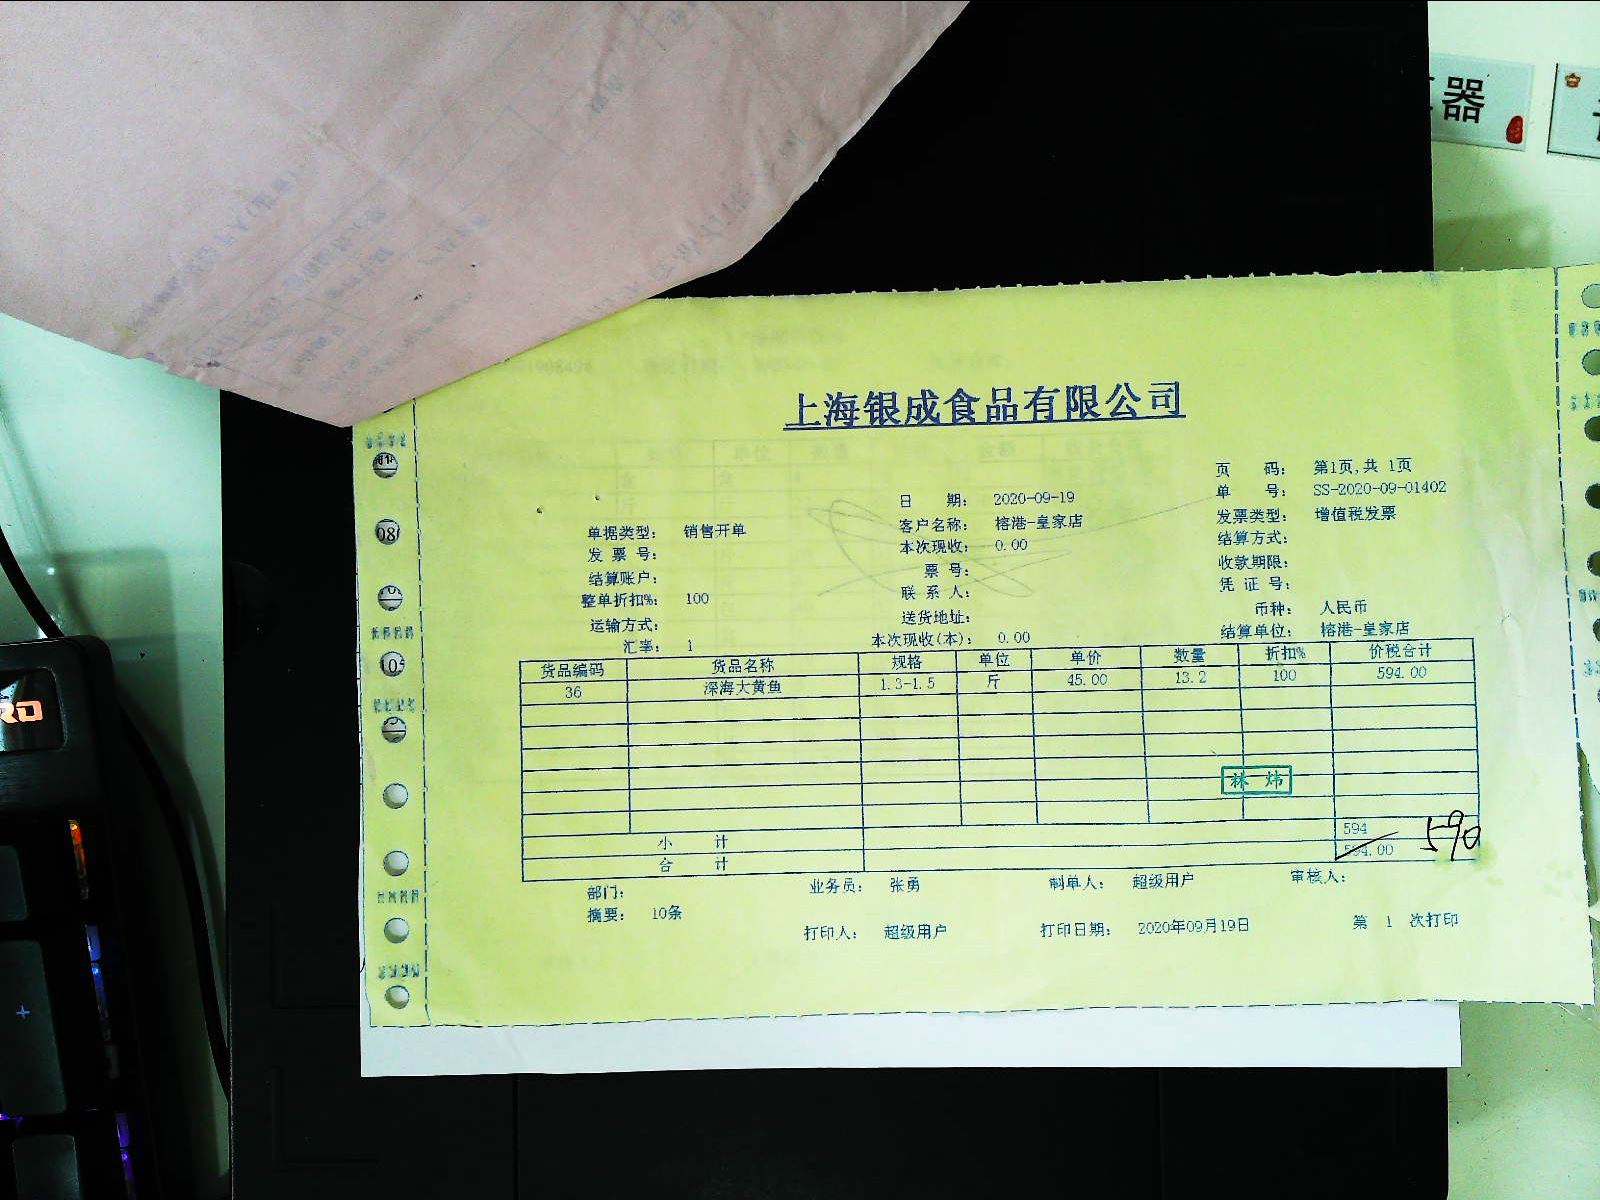 器
上海银成食品有限公司
页 码: 第1页,共 1页
日 期: 2020-09-19 单 号: SS-2020-09-01402
单据类型: 销售开单 客户名称: 榕港-皇家店 发票类型: 增值税发票
发 票 号: 本次现收: 0.00 结算方式:
结算账户: 票 号: 收款期限:
整单折扣%: 100 联 系 人: 凭 证 号:
运输方式: 送货地址: 币种: 人民币
汇率: 1 本次现收(本): 0.00 结算单位: 榕港-皇家店
货品编码 货品名称 规格 单位 单价 数量 折扣% 价税合计
36 深海大黄鱼 1.3-1.5 斤 45.00 13.2 100 594.00
林 炜
小 计 594
合 计 594.00 590
部门: 业务员: 张勇 制单人: 超级用户 审核人:
摘要: 10条
打印人: 超级用户 打印日期: 2020年09月19日 第 1 次打印